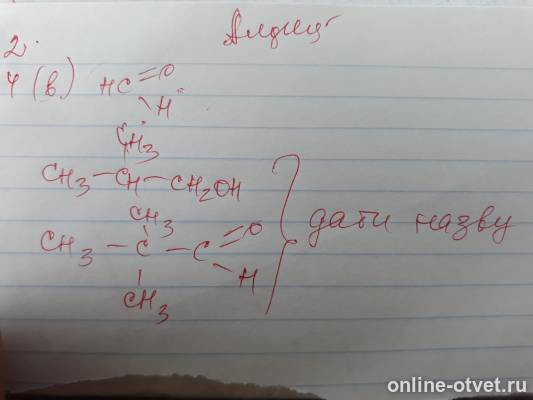 2.
4 (в.) HC=O
H
CH3
CH3-CH-CH2OH
CH3
CH3-C-C=O
H
CH3
дати назву
online-otvet.ru